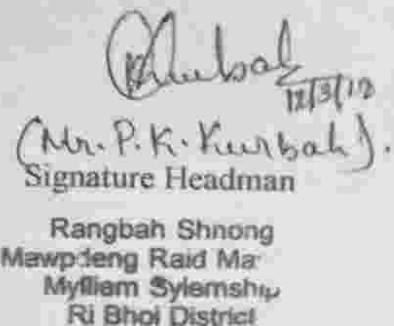 12/3/18
(Mr. P.K. Kurbah).
Signature Headman
Rangbah Shnong
Mawpdeng Raid Mar
Mylliem Sylemship
Ri Bhoi District